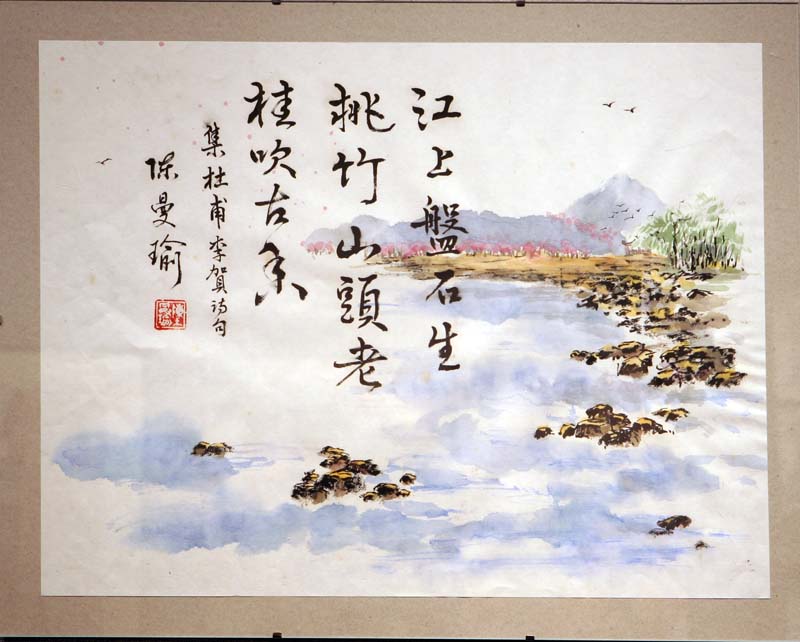 江上盤石生
桃竹山頭老
桂吹古香
集杜甫李賀詩句
陈曼瑜